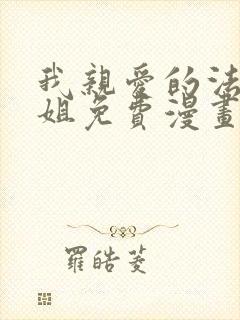 我親愛的法
姐免費漫畫
羅皓菱